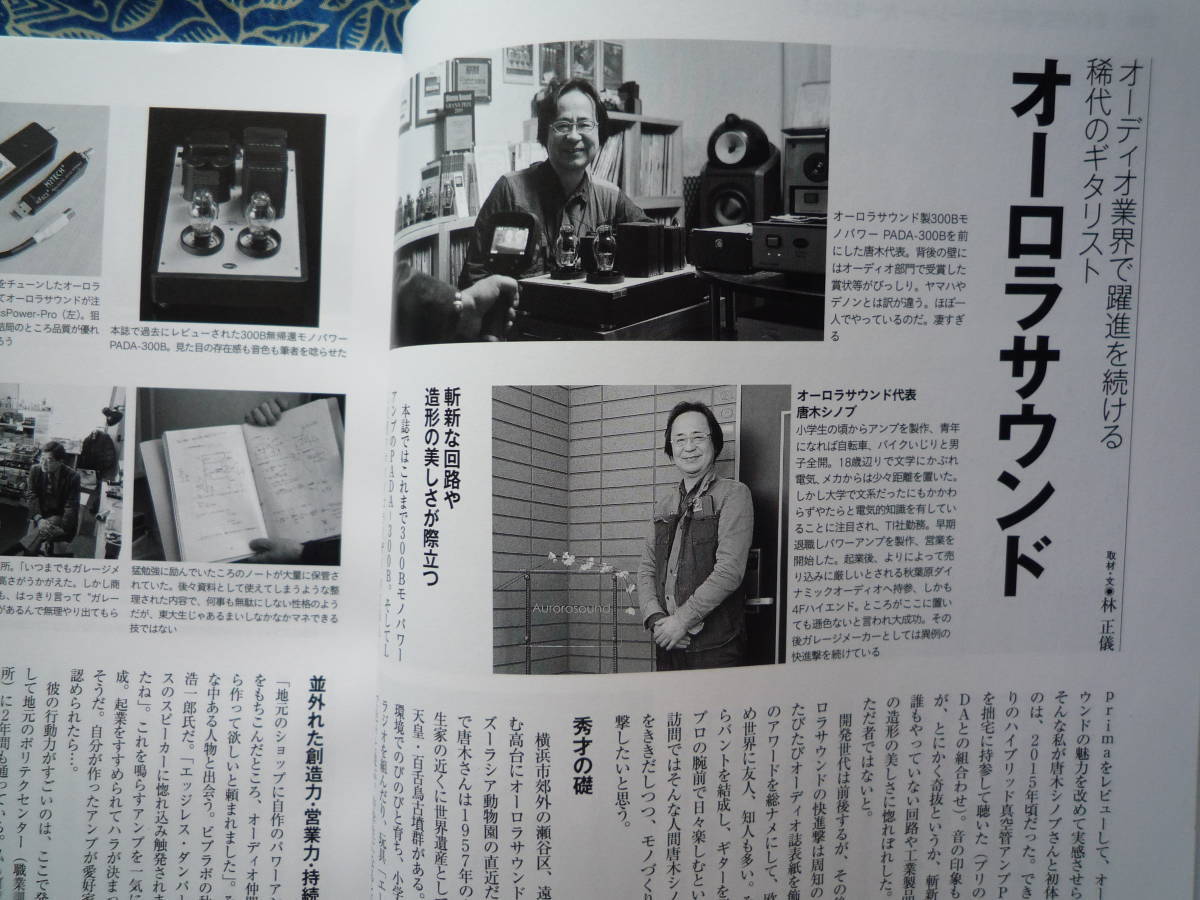 オーディオ業界で躍進を続ける
稀代のギタリスト
オーロラサウンド
取材・文◉林 正儀
オーロラサウンド製300Bモ
ノパワー PADA-300Bを前
にした唐木代表。背後の壁に
はオーディオ部門で受賞した
賞状等がびっしり。ヤマハや
デノンとは訳が違う。ほぼ一
人でやっているのだ。凄すぎ
る
オーロラサウンド代表
唐木シノブ
小学生の頃からアンプを製作、青年
になれば自転車、バイクいじりと男
子全開。18歳辺りで文学にかぶれ
電気、メカからは少々距離を置いた。
しかし大学で文系だったにもかかわ
らずやたらと電気的知識を有してい
ることに注目され、TI社勤務。早期
退職しパワーアンプを製作、営業を
開始した。起業後、よりによって売
り込みに厳しいとされる秋葉原ダイ
ナミックオーディオへ持参、しかも
4Fハイエンド。ところがここに置い
ても遜色ないと言われ大成功。その
後ガレージメーカーとしては異例の
快進撃を続けている
Aurorasound
primaをレビューして、オー
ウンドの魅力を改めて実感させら
そんな私が唐木シノブさんと初体
のは、2015年頃だった。でき
りのハイブリッド真空管アンプP
を拙宅に持参して聴いた（プリの
DAとの組合わせ）。音の印象も
が、とにかく奇抜というか、斬新
誰もやっていない回路や工業製品
の造形の美しさに惚れぼれした。
ただ者ではないと。
開発世代は前後するが、その後
ロラサウンドの快進撃は周知の
たびたびオーディオ誌表紙を飾
のアワードを総ナメにして、欧
め世界に友人、知人も多い。
らバントを結成し、ギターを
プロの腕前で日々楽しむとい
訪問ではそんな人間唐木シノ
をききだしつつ、モノづくり
撃したいと思う。
秀才の礎
横浜市郊外の瀬谷区、遠
む高台にオーロラサウンド
ズーラシア動物園の直近だ
で唐木さんは1957年の
生家の近くに世界遺産とし
天皇・百舌鳥古墳群がある。
環境でのびのびと育ち、小学
ラジオを組んだり、玩具「エー
斬新な回路や
造形の美しさが際立つ
本誌ではこれまで300Bモノパワー
アンプのPADA-300B。そしてL
をチューンしたオーロラ
てオーロラサウンドが注
sPower-Pro（左）。狙
結局のところ品質が優れ
ろう
本誌で過去にレビューされた300B無帰還モノパワー
PADA-300B。見た目の存在感も音色も筆者を唸らせた
所。「いつまでもガレージメ
高さがうかがえた。しかし商
も、はっきり言って “ガレー
があるんで無理やり出てもら
猛勉強に励んでいたころのノートが大量に保管さ
れていた。後々資料として使えてしまうような整
理された内容で、何事も無駄にしない性格のよう
だが、東大生じゃあるまいしなかなかマネできる
技ではない
並外れた創造力・営業力・持続
「地元のショップに自作のパワーアン
をもちこんだところ、オーディオ仲間
ら作って欲しいと頼まれました」。そ
な中ある人物と出会う。ビブラボの秋
浩一郎氏だ。「エッジレス・ダンパー
スのスピーカーに惚れ込み触発されま
たね」。これを鳴らすアンプを一気に
成。起業をすすめられてハラが決まっ
そうだ。自分が作ったアンプが愛好家
認められたら…。
彼の行動力がすごいのは、ここで発
して地元のポリテクセンター（職業訓
所）に2年間も通っている。